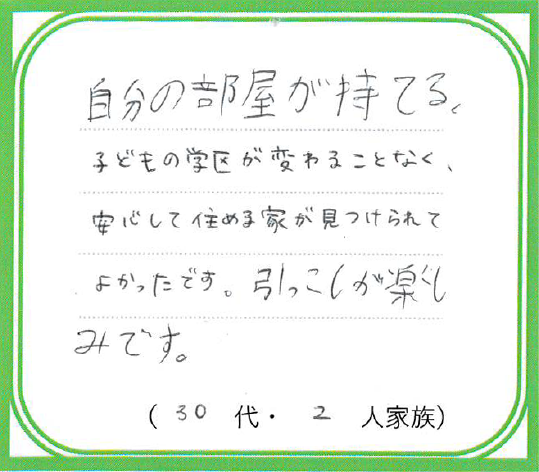 自分の部屋が持てる、
子どもの学区が変わることなく、
安心して住める家が見つけられて
よかったです。引っこしが楽し
みです。
(30代・2人家族)